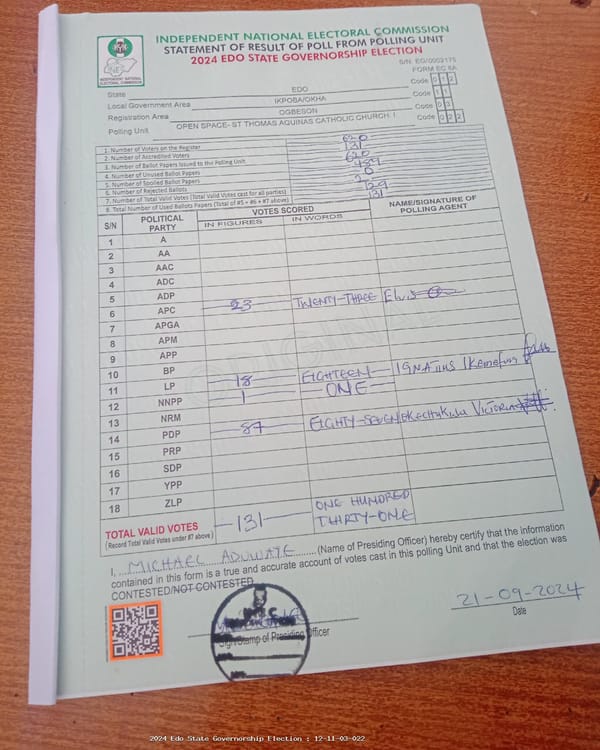 INDEPENDENT NATIONAL ELECTORAL COMMISSION
STATEMENT OF RESULT OF POLL FROM POLLING UNIT
2024 EDO STATE GOVERNORSHIP ELECTION
INDEPENDENT NATIONAL ELECTORAL COMMISSION
S/N: EG/0003175
FORM EC 8A
State EDO Code 1 2
Local Government Area IKPOBA/OKHA Code 1 1
Registration Area OGBESON Code 0 3
Polling Unit OPEN SPACE- ST THOMAS AQUINAS CATHOLIC CHURCH I Code 0 2 2
1. Number of Voters on the Register 620
2. Number of Accredited Voters 131
3. Number of Ballot Papers Issued to the Polling Unit 620
4. Number of Unused Ballot Papers 489
5. Number of Spoiled Ballot Papers 0
6. Number of Rejected Ballots 2
7. Number of Total Valid Votes (Total Valid Votes cast for all parties) 129
8. Total Number of Used Ballots Papers (Total of #5 + #6 + #7 above) 131
S/N POLITICAL PARTY VOTES SCORED NAME/SIGNATURE OF POLLING AGENT
IN FIGURES IN WORDS
1 A
2 AA
3 AAC
4 ADC
5 ADP
6 APC 23 TWENTY-THREE
7 APGA
8 APM
9 APP
10 BP
11 LP 18 EIGHTEEN IGNATIUS
12 NNPP 1 ONE
13 NRM
14 PDP 87 EIGHTY-SEVEN OKECHUKWU VICTORIA
15 PRP
16 SDP
17 YPP
18 ZLP
TOTAL VALID VOTES 131 ONE HUNDRED
(Record Total Valid Votes under #7 above) THIRTY-ONE
I, MICHAEL ADUWATE (Name of Presiding Officer) hereby certify that the information
contained in this form is a true and accurate account of votes cast in this polling Unit and that the election was
CONTESTED/NOT CONTESTED
21-09-2024
Sign/Stamp of Presiding Officer
Date
2024 Edo State Governorship Election : 12-11-03-022